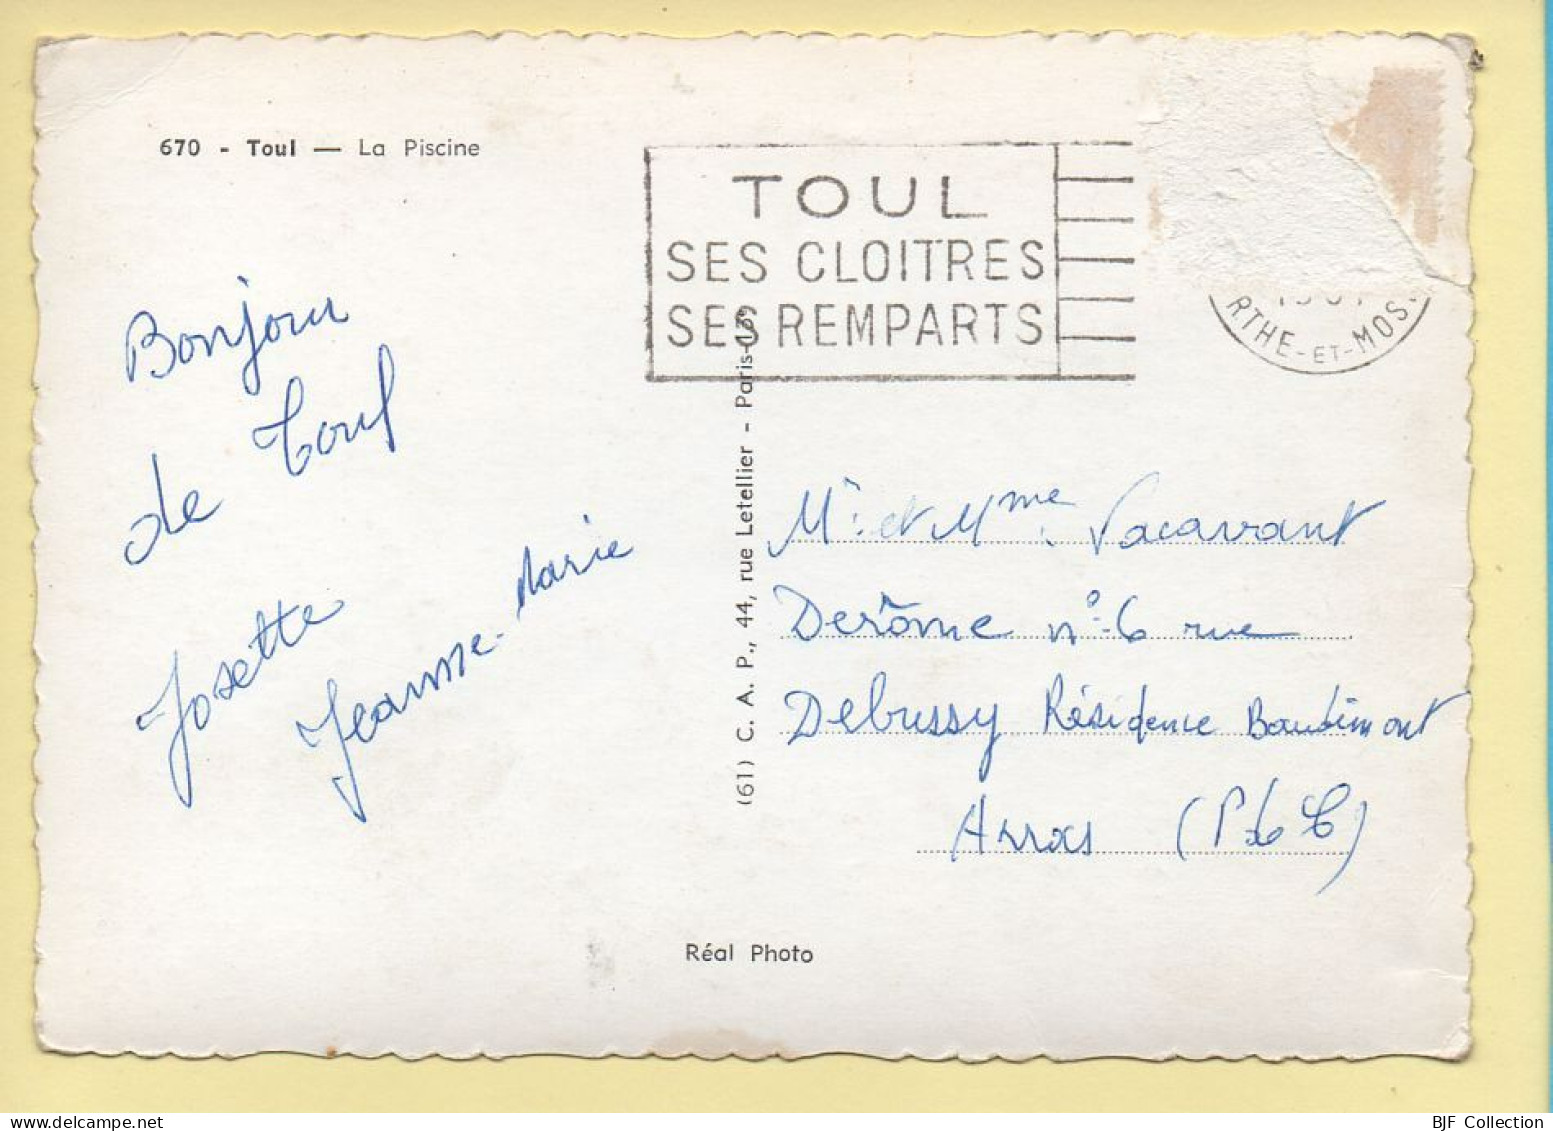 670 - Toul — La Piscine
TOUL
SES CLOITRES
SES REMPARTS
RTHE-ET-MOS
Bonjour
de Toul
Josette
Jeanne-Marie
(61) C. A. P., 44, rue Letellier - Paris-
Mr et Mme Vacavant
Derôme n° 6 rue
Debussy Résidence Baudimont
Arras (P de C)
Réal Photo
BJF Collection